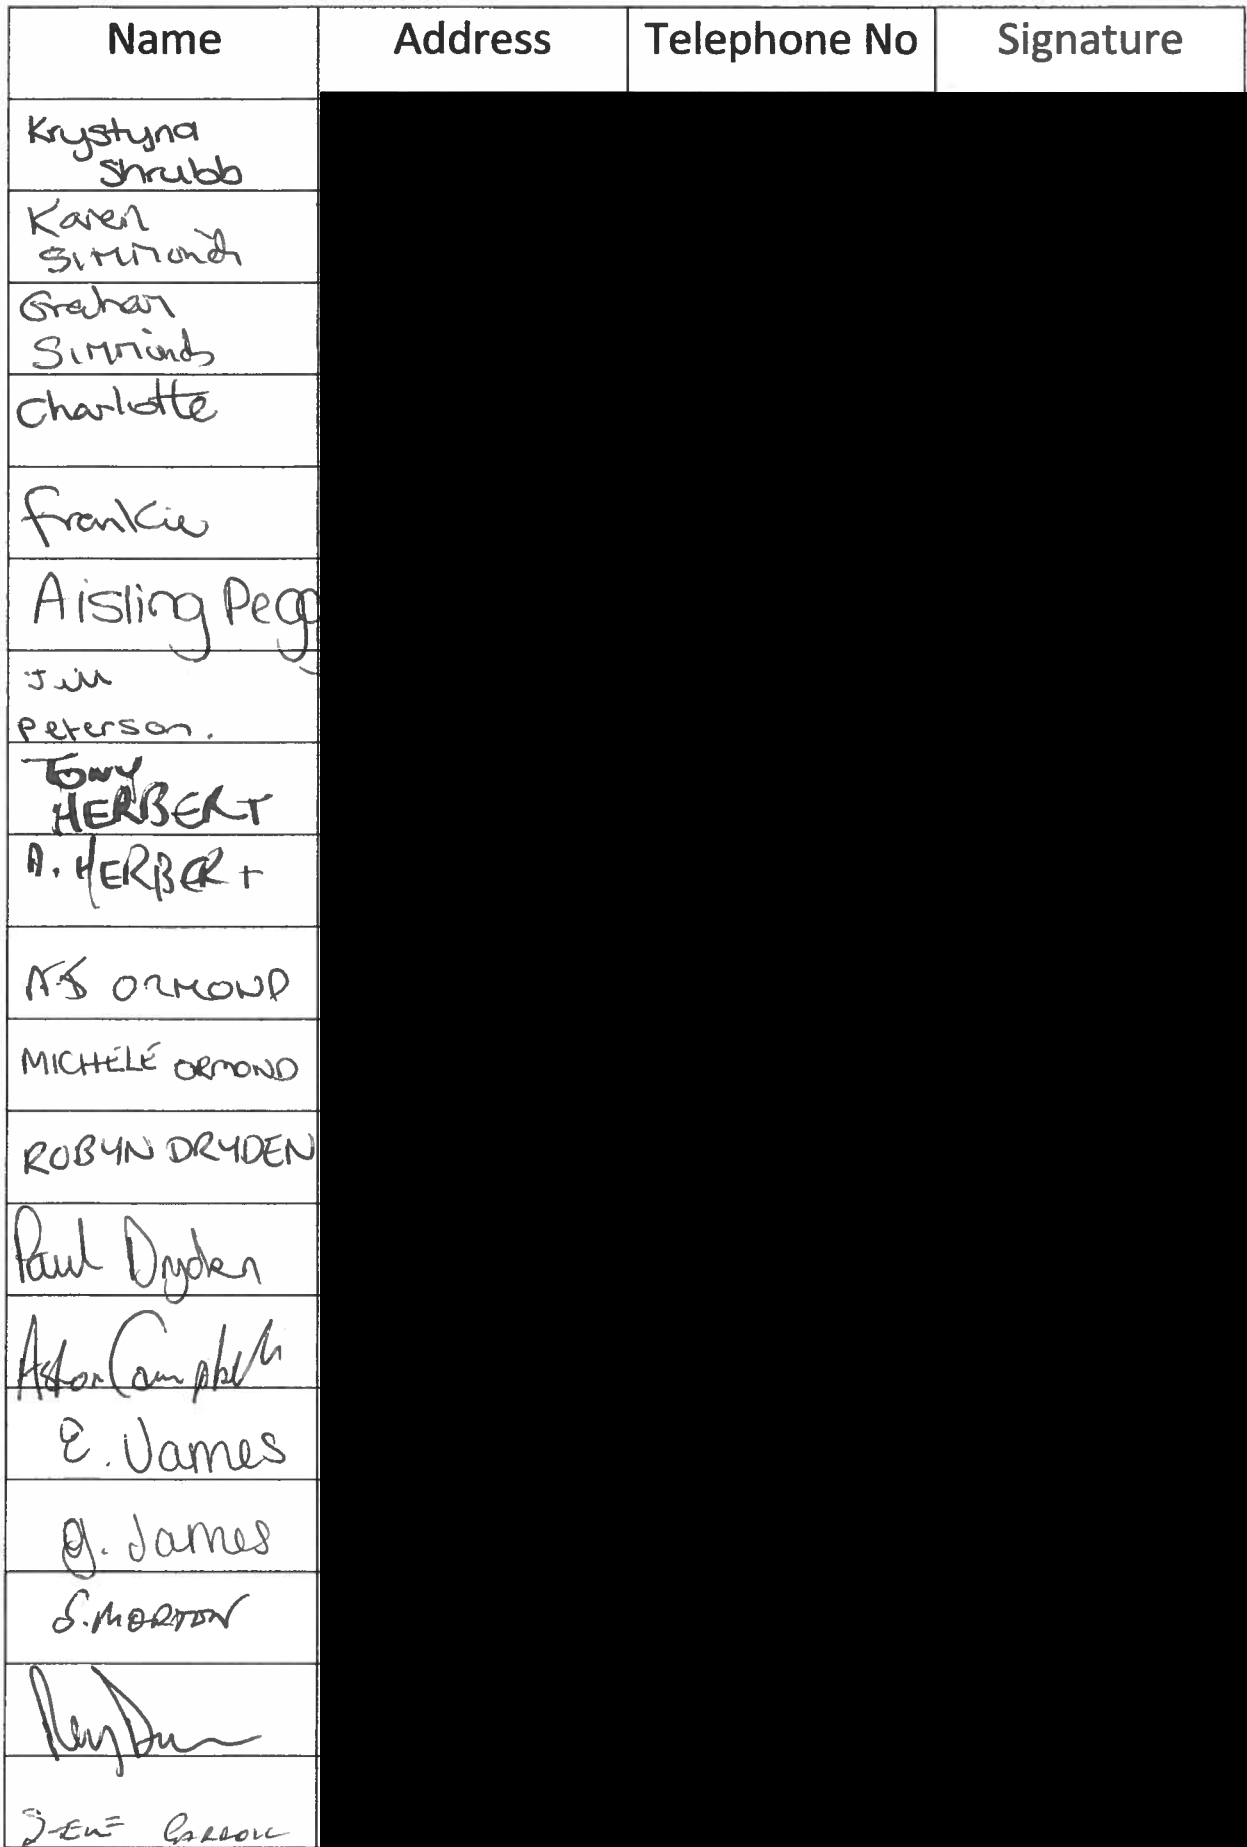 Name Address Telephone No Signature
Krystyna
Shrubb
Karen
Simmonds
Graham
Simmonds
Charlotte
Frankie
Aisling Pegg
Jill
Peterson.
Tony
HERBERT
A. HERBERt
ORMOND
MICHELE ORMOND
ROBYN DRYDEN
Paul Dryden
Aston Campbell
E. James
G. James
S. MORTON